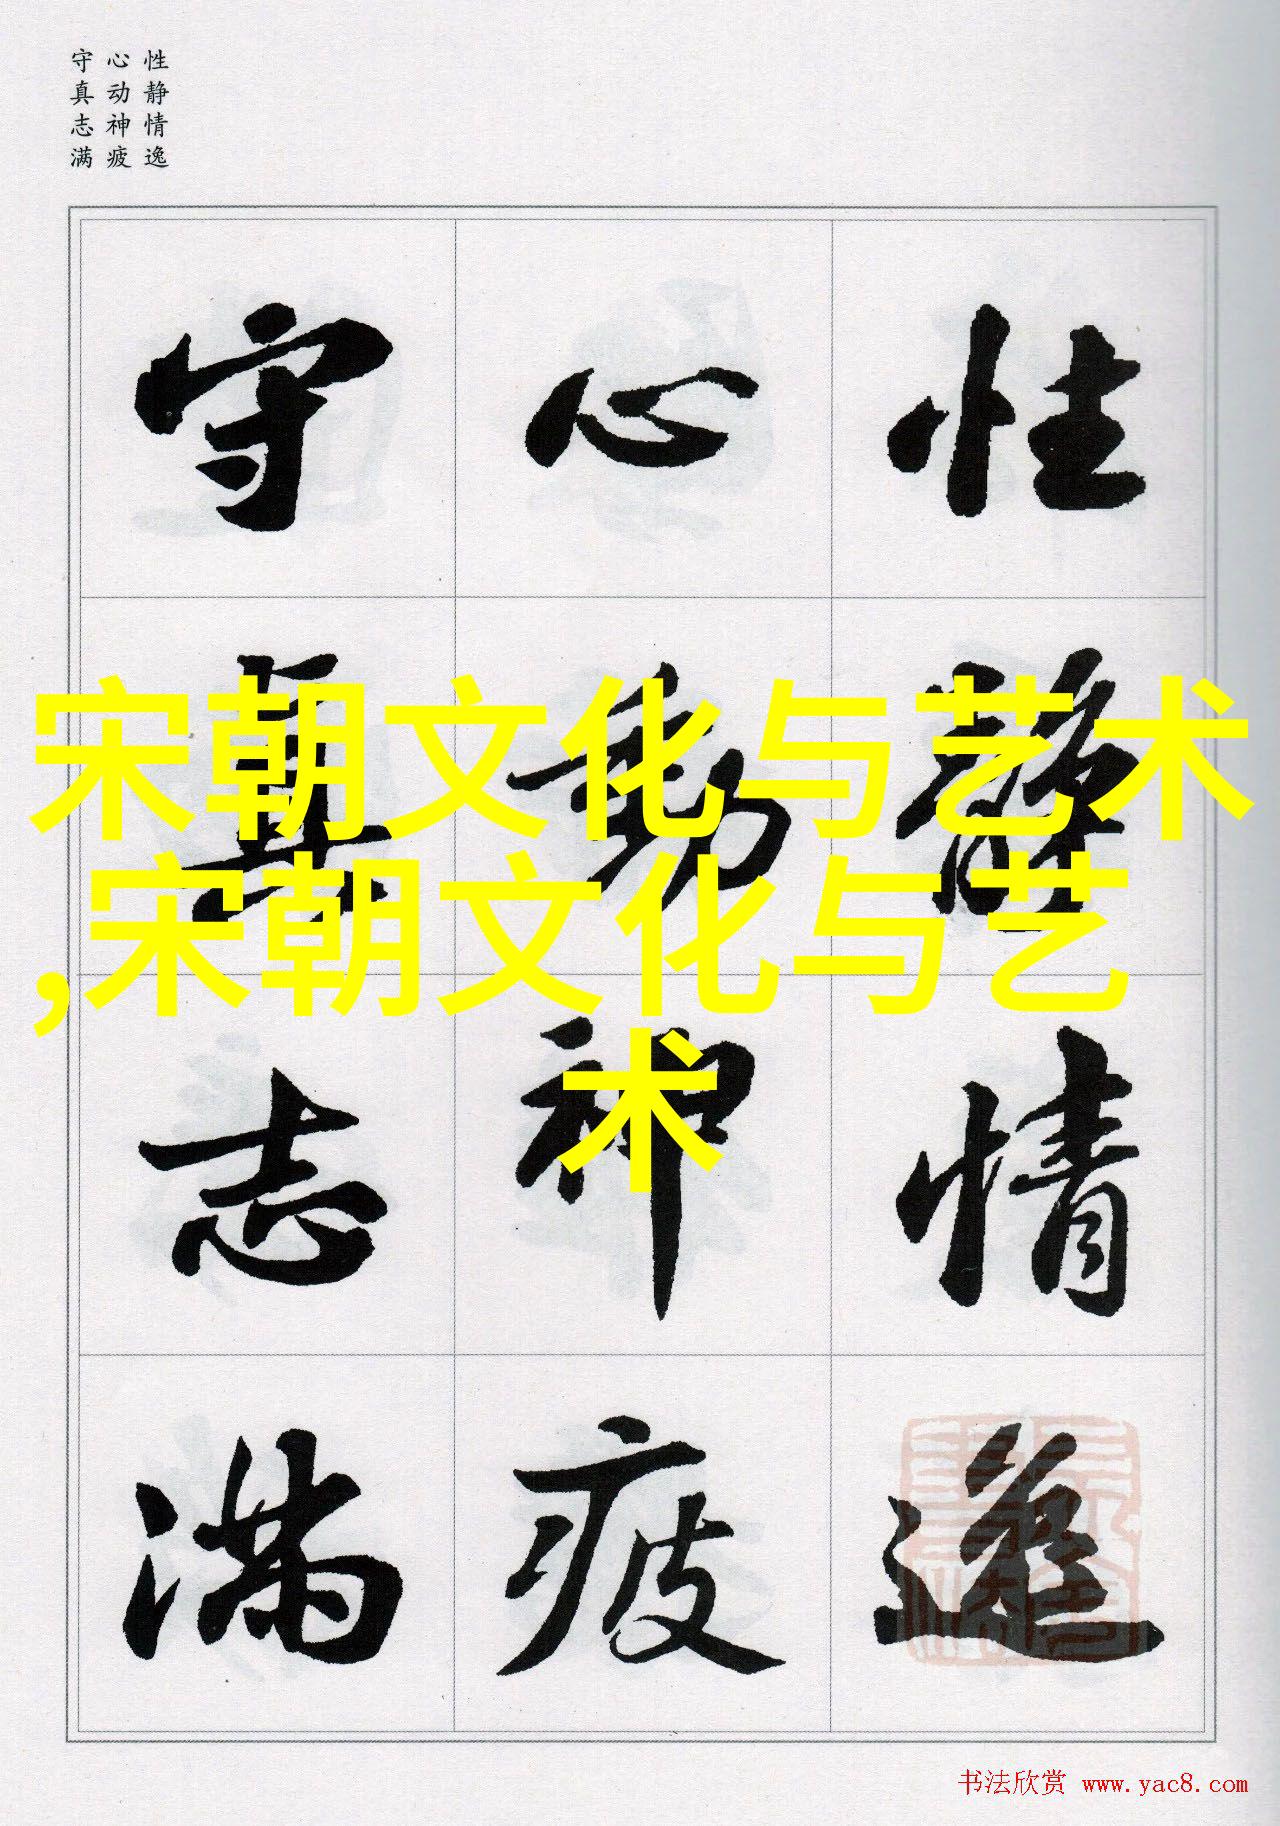 性静情逸
心动神疲
守真志满
性靜情逸
心動神疲
守真志满
宋朝文化与艺术
,宋朝文化与艺
术
书法欣赏 www.yac8.com